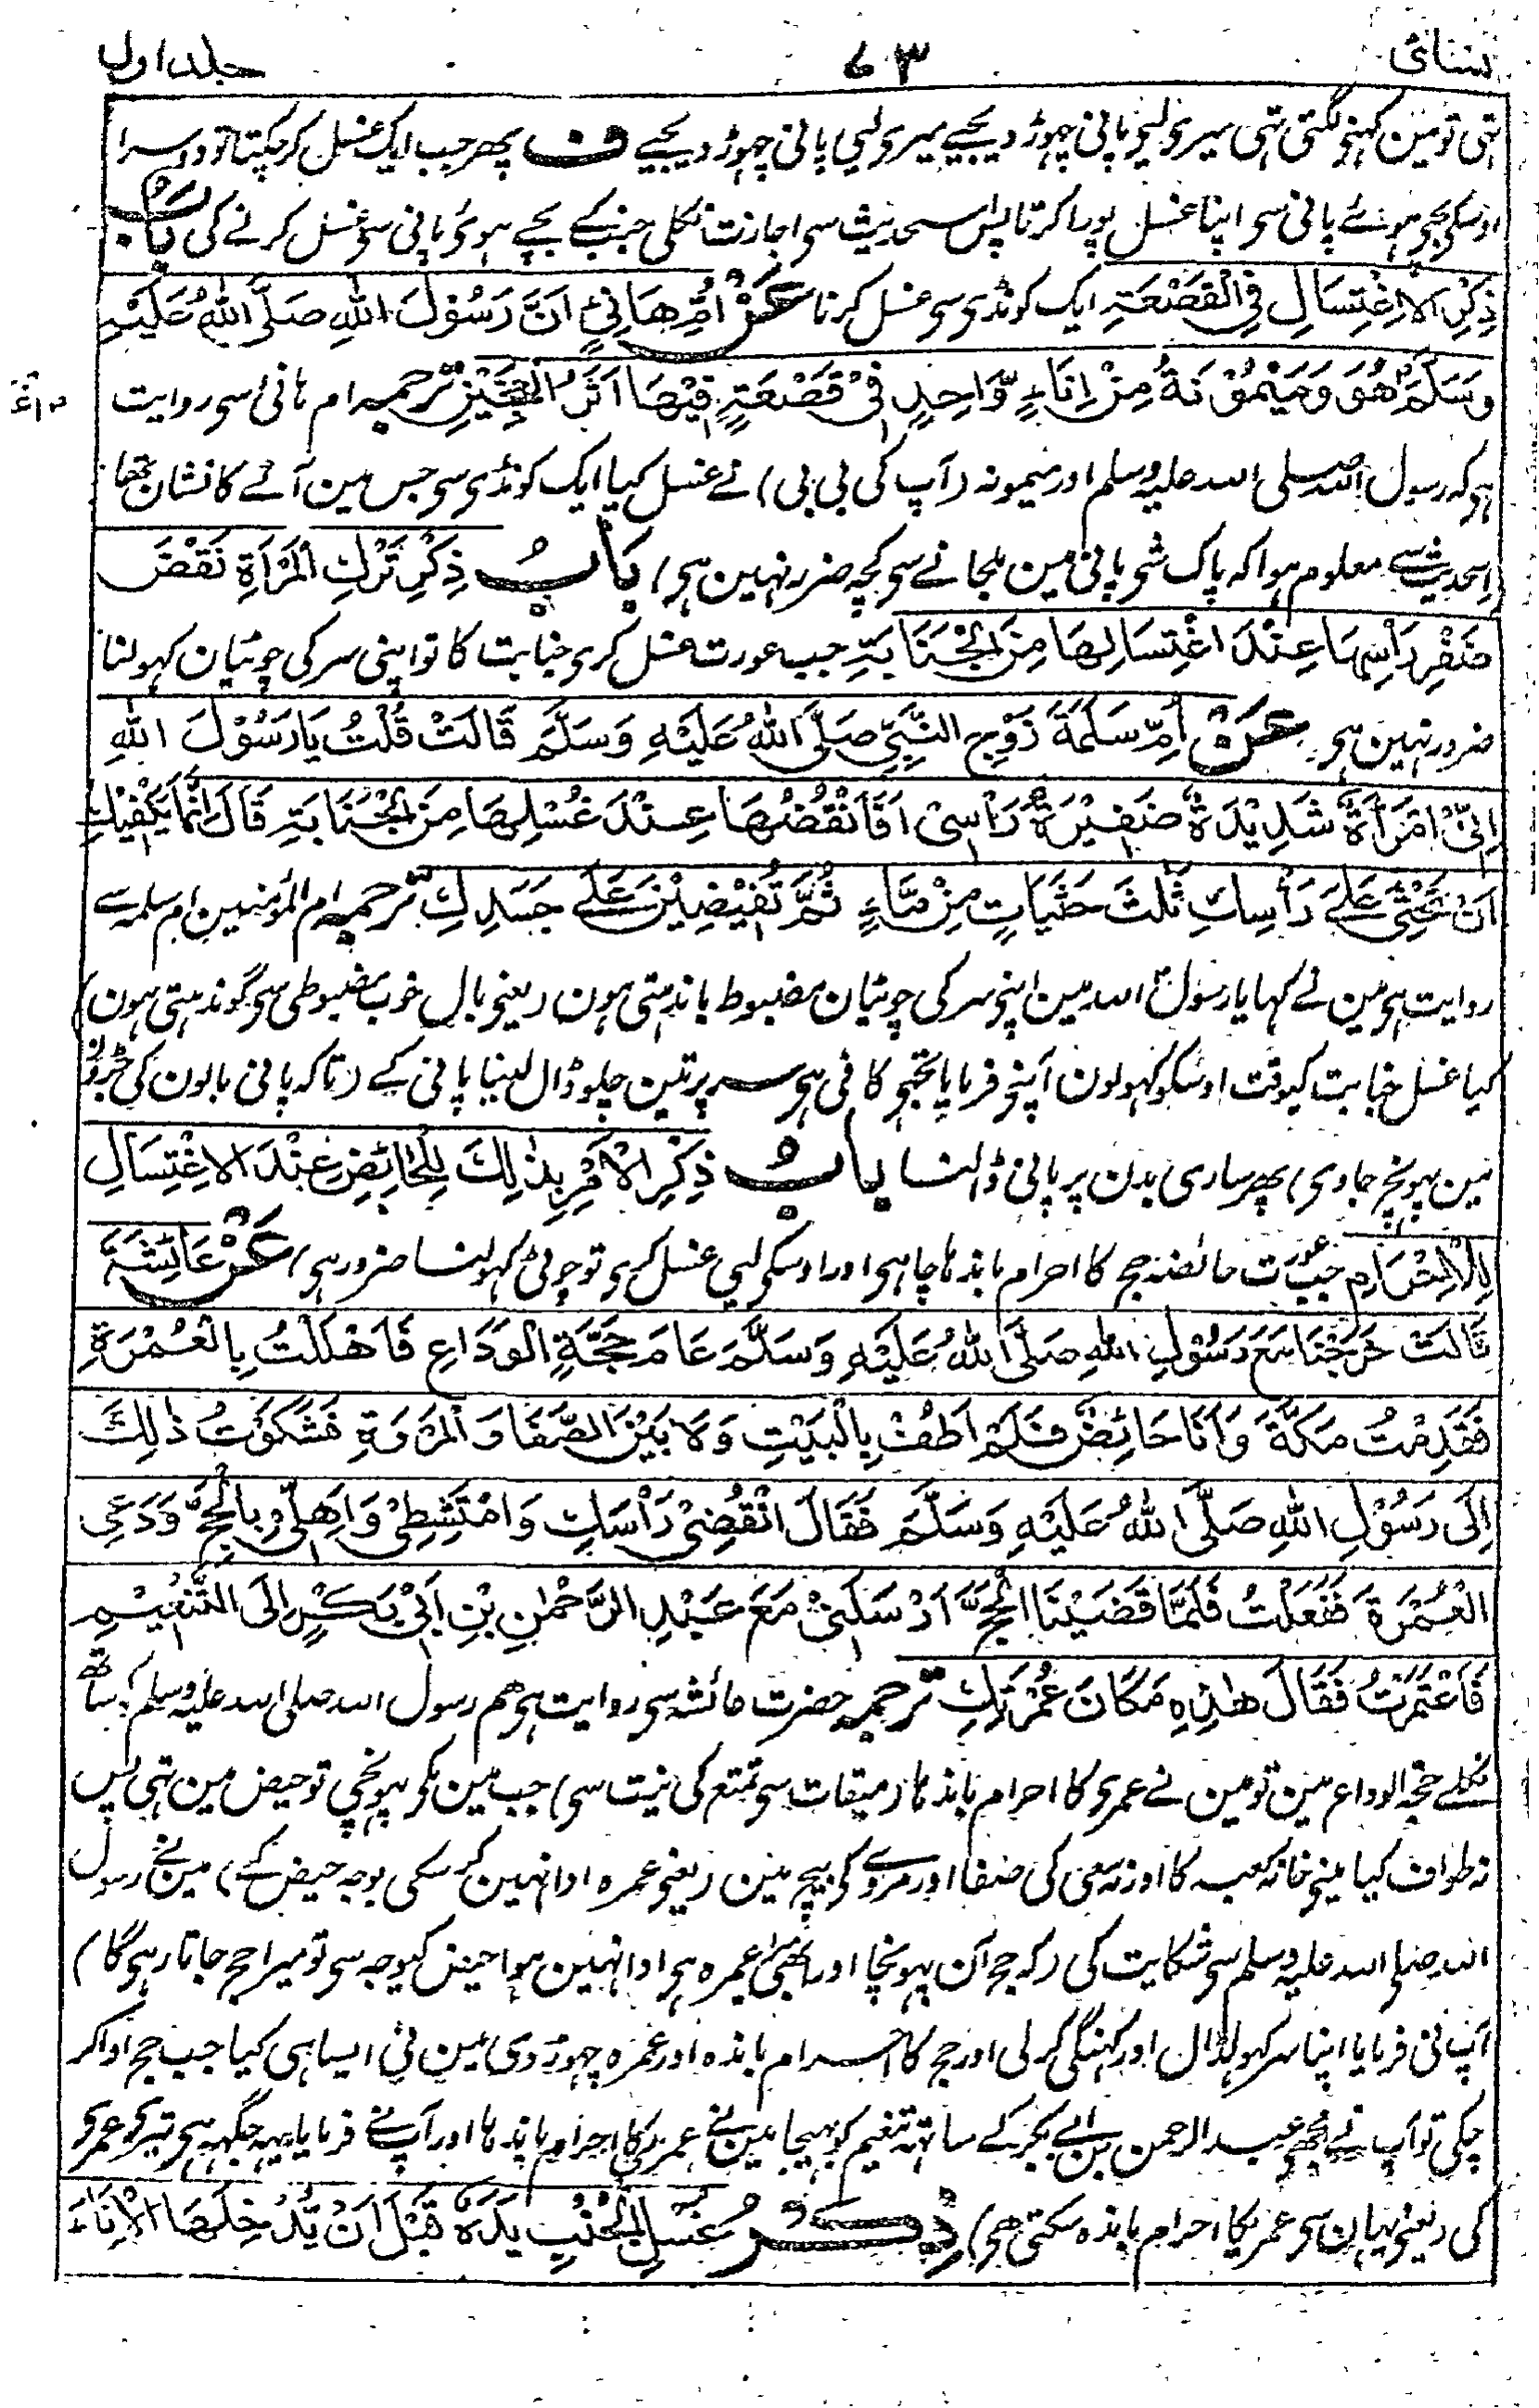 نسائی ۷۳ جلد اول
تہی تو مین کہنو لگتی تہی میری لیو پانی چہوڑ دیجیے میری لیی پانی چہوڑ دیجیے ف پھر جب ایک غسل کر چکتا تو دوسرا
اوسکی بچی ہوئے پانی سی اپنا غسل پورا کرتا پس اسحدیث سی اجازت نکلی جنب کے بچے ہوئ پانی سی غسل کرنے کی بَابُ
ذِكْرِ الْاِغْتِسَالِ فِي الْقَصْعَةِ ایک کونڈی سی غسل کرنا عَنْ اُمِّ هَانِئٍ اَنَّ رَسُوْلَ اللهِ صَلَّى اللهُ عَلَيْهِ
وَسَلَّمَ هُوَ وَمَيْمُوْنَةُ مِنْ اِنَاءٍ وَّاحِدٍ فِىْ قَصْعَةٍ فِيْهَا اَثَرُ الْعَجِيْنِ ترجمہ ام ہانئ سی روایت
ہو کہ رسول اللہ صلی اللہ علیہ وسلم اور میمونہ (آپ کی بی بی) نے غسل کیا ایک کونڈی سی جس مین آٹے کا نشان تھا
(اسحدیث سے معلوم ہوا کہ پاک شی پانی مین ملجانے سی کچہ ضرر نہین ہی) بَابُ ذِكْرِ تَرْكِ الْمَرْاَةِ نَقْضَ
ضَفْرِ رَاْسِهَا عِنْدَ اغْتِسَالِهَا مِنَ الْجَنَابَةِ جب عورت غسل کری جنابت کا تو اپنی سر کی چوٹیان کہولنا
ضرور نہین ہی عَنْ اُمِّ سَلَمَةَ زَوْجِ النَّبِيِّ صَلَّى اللهُ عَلَيْهِ وَسَلَّمَ قَالَتْ قُلْتُ يَا رَسُوْلَ اللهِ
اِنِّيْ امْرَاَةٌ شَدِيْدَةٌ ضَفِيْرَةُ رَاْسِىْ اَفَاَنْقُضُهَا عِنْدَ غُسْلِهَا مِنَ الْجَنَابَةِ قَالَ اِنَّمَا يَكْفِيْكِ
اَنْ تَحْثِىْ عَلٰى رَاْسِكِ ثَلٰثَ حَثَيَاتٍ مِنْ مَّاءٍ ثُمَّ تُفِيْضِيْنَ عَلٰے جَسَدِكِ ترجمہ ام المؤمنین ام سلمہ سے
روایت ہی مین نے کہا یا رسول اللہ مین اپنو سر کی چوٹیان مضبوط باندہتی ہون (یعنی بال خوب مضبوطی سی گوندہتی ہون)
کیا غسل جنابت کیوقت اوسکو کہولون آپنی فرمایا تجہی کافی ہی سر پر تین چلو ڈال لینا پانی کے (تاکہ پانی بالون کی جڑونو
مین پہونچ جاوی) پھر ساری بدن پر پانی ڈالنا بَابُ ذِكْرِ الْاَمْرِ بِذٰلِكَ لِلْحَائِضِ عِنْدَ الْاِغْتِسَالِ
لِلْاِحْرَامِ جب عورت حائضہ حج کا احرام باندہا چاہی اور اوسکی لیی غسل کری تو چوٹی کہولنا ضرور ہی) عَنْ عَائِشَةَ
قَالَتْ خَرَجْنَا مَعَ رَسُوْلِ اللهِ صَلَّى اللهُ عَلَيْهِ وَسَلَّمَ عَامَ حَجَّةِ الْوَدَاعِ فَاَهْلَلْتُ بِالْعُمْرَةِ
فَقَدِمْتُ مَكَّةَ وَاَنَا حَائِضٌ فَلَمْ اَطُفْ بِالْبَيْتِ وَلَا بَيْنَ الصَّفَا وَالْمَرْوَةِ فَشَكَوْتُ ذٰلِكَ
اِلَى رَسُوْلِ اللهِ صَلَّى اللهُ عَلَيْهِ وَسَلَّمَ فَقَالَ انْقُضِىْ رَاْسَكِ وَامْتَشِطِىْ وَاَهِلِّىْ بِالْحَجِّ وَدَعِى
الْعُمْرَةَ فَفَعَلْتُ فَلَمَّا قَضَيْنَا الْحَجَّ اَرْسَلَنِىْ مَعَ عَبْدِ الرَّحْمٰنِ بْنِ اَبِىْ بَكْرٍ اِلَى التَّنْعِيْمِ
فَاعْتَمَرْتُ فَقَالَ هٰذِهِ مَكَانَ عُمْرَتِكِ ترجمہ حضرت عائشہ سی روایت ہی ہم رسول اللہ صلی اللہ علیہ وسلم کے ساتھ
نکلے حجۃ الوداع مین تو مین نے عمری کا احرام باندہا (میقات سی تمتع کی نیت سی) جب مین مکہ پہونچی تو حیض مین تہی پس
نہ طواف کیا مینی خانہ کعبہ کا اور نہ سعی کی صفا اور مروے کی بیچ مین (یعنی عمرہ ادا نہین کر سکی بوجہ حیض کے) مین نے رسول
اللہ صلی اللہ علیہ وسلم سی شکایت کی (کہ حج آن پہونچا اور ابھی میرا عمرہ ہی ادا نہین ہوا حیض کیوجہ سی تو میرا حج جاتا رہیگا)
آپ نی فرمایا اپنا سر کہولڈال اور کنگہی کر لی اور حج کا احرام باندہ اور عمرہ چہوڑ دی مین نی ایسا ہی کیا جب حج ادا کر
چکی تو آپ نے مجھی عبد الرحمن بن ابی بکر کے ساتہ تنعیم کو بہیجا مین نے عمریکا احرام باندہا اور آپنے فرمایا یہہ جگہہ ہی تیری عمری
کی (یعنی یہان سی عمریکا احرام باندہ سکتی ہی) ذِكْرُ غُسْلِ الْجُنُبِ يَدَهٗ قَبْلَ اَنْ يُّدْخِلَهَا الْاِنَاءَ